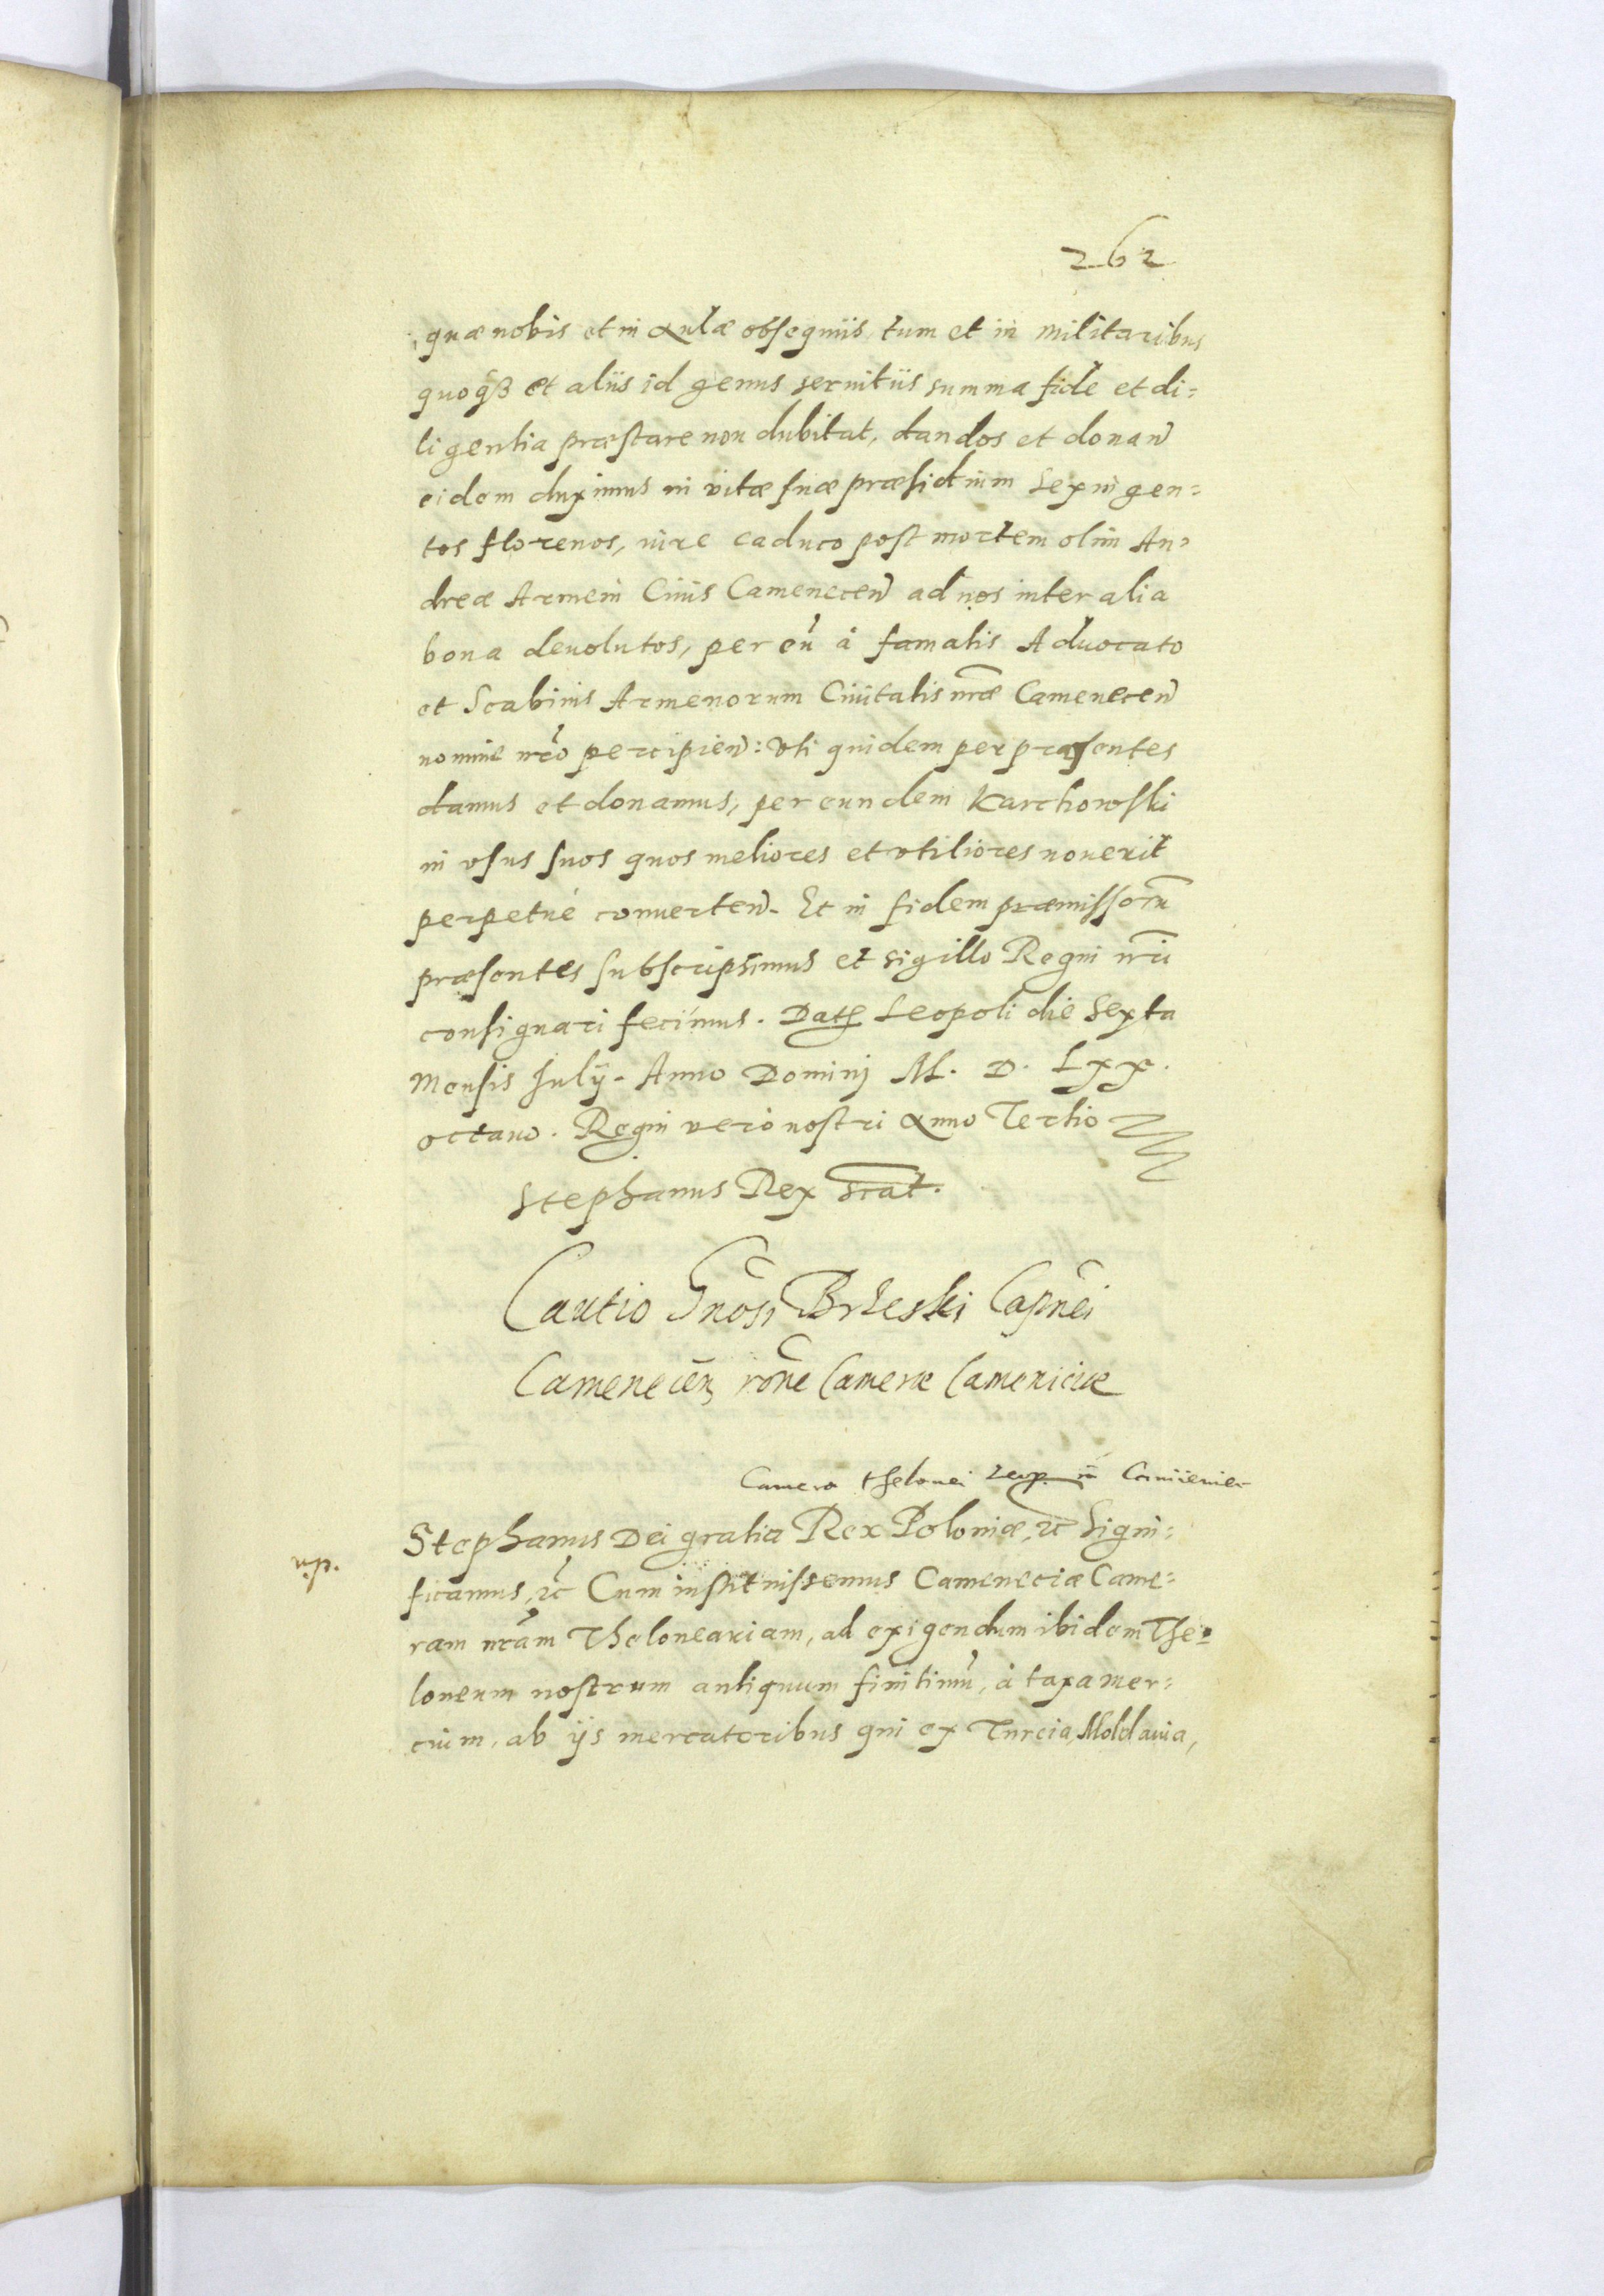 262
quæ nobis et in Aulæ obsequiis, tum et in militaribus
quoqȝ et aliis id genus seruitiis summa fide et di=
ligentia præstare non dubitat, dandos et donan̄
eidem duximus in vitæ suæ præsidium Sexingen=
tos florenos, iure caduco post mortem olim An=
dreæ Armeni Ciuis Camenecen̄ ad nos inter alia
bona deuolutos, per eū à famatis Aduocato
et Scabinis Armenorum Ciuitatis nr̄æ Camenecen̄
nomine nr̄o percipien̄: Vti quidem per præsentes
damus et donamus, per eundem Karchowski
in vsus suos quos meliores et vtiliores nouerit
perpetuè conuerten̄. Et in fidem præmissorū
præsentes subscripsimus et sigillo Regni nr̄i
consignari fecimus. Datꝭ Leopoli die Sexta
Mensis Julij. Anno Dominj M. D. Lxx.
octauo. Regni vero nostri Anno Tertio
Stephanus Rex sc̄at.
Cautio Gn̄osi Brzeski Capn̄ei
Camenecēn rōne Camere Camenicise
Camera thelonei in Camieniec
Stephanus Dei gratia Rex Poloniæ, ꝛc̄ Signi=
n.p.
ficamus, ꝛc̄ Cum instituissemus Cameneciæ Came=
ram nr̄am Theloneariam, ad exigendum ibidem The=
loneum nostrum antiquum finitimū, à taxa mer=
cium, ab ijs mercatoribus qui ex Turcia, Moldauia,